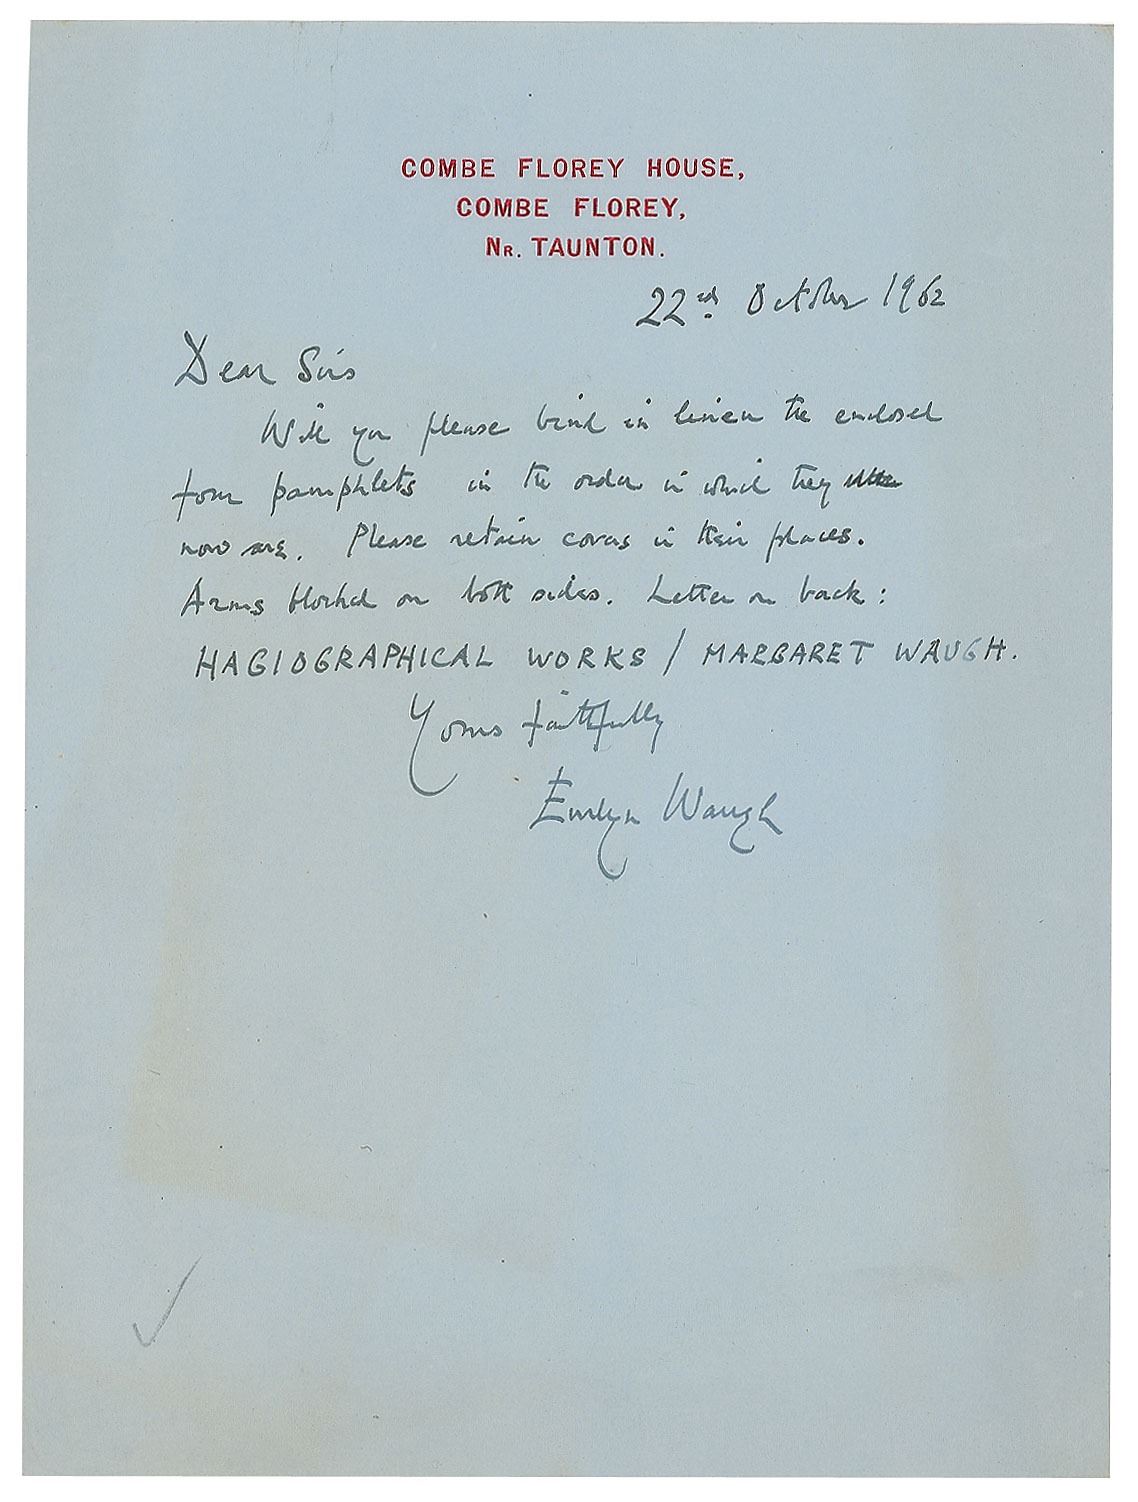 COMBE FLOREY HOUSE,
COMBE FLOREY,
NR. TAUNTON.
22nd October 1962
Dear Sirs
Will you please bind in linen the enclosed
four pamphlets in the order in which they
now are. Please retain covers in their places.
Arms blocked on both sides. Letter on back:
HAGIOGRAPHICAL WORKS / MARGARET WAUGH.
Yours faithfully
Evelyn Waugh